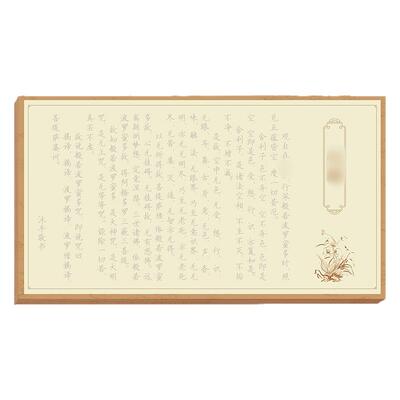 观自在 行深般若波罗蜜多时，照
见五蕴皆空，度一切苦厄。
舍利子，色不异空，空不异色，色即是
空，空即是色。受、想、行、识，亦复如是。
舍利子，是诸法空相，不生不灭，不垢
不净，不增不减。
是故空中无色，无受、想、行、识，
无眼、耳、鼻、舌、身、意，无色、声、香、
味、触、法，无眼界，乃至无意识界，无无
明，亦无无明尽，乃至无老死，亦无老死
尽。无苦、集、灭、道，无智亦无得。
以无所得故，菩提萨埵，依般若波罗蜜
多故，心无挂碍。无挂碍故，无有恐怖，远
离颠倒梦想，究竟涅槃。三世诸佛，依般若
波罗蜜多故，得阿耨多罗三藐三菩提。
故知般若波罗蜜多，是大神咒，是大明
咒，是无上咒，是无等等咒，能除一切苦，
真实不虚。
故说般若波罗蜜多咒，即说咒曰：
揭谛、揭谛，波罗揭谛，波罗僧揭谛，
菩提萨婆诃。
沐手敬书